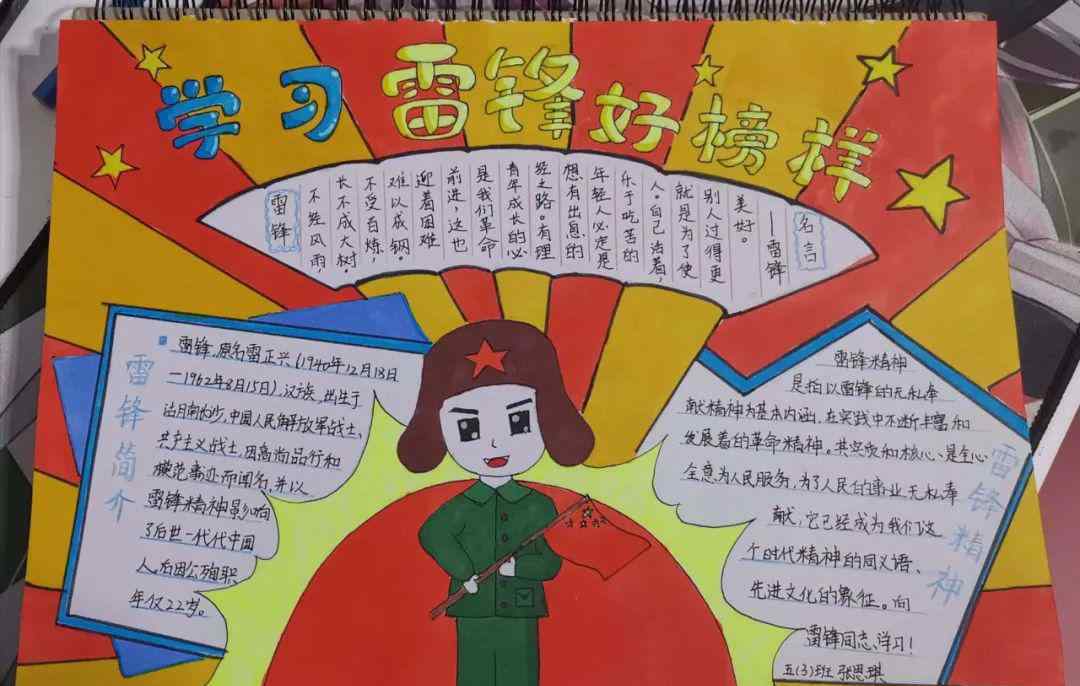 学习雷锋好榜样
雷锋
不经风雨,
长不成大树。
不受百炼,
难以成钢。
迎着困难
前进,这也
是我们革命
青年成长的必
经之路。有理
想有出息的
年轻人必走是
乐于吃苦的
人。自己活着,
就是为了使
别人过得更
美好。
——雷锋
名言
雷锋简介
雷锋,原名雷正兴(1940年12月18日
—1962年8月15日),汉族,出生于
湖南长沙,中国人民解放军战士、
共产主义战士,因高尚品行和
模范事迹而闻名,并以
雷锋精神影响
了后世一代代中国
人。后因公殉职
年仅22岁。
雷锋精神
雷锋精神
是指以雷锋的无私奉
献精神为基本内涵,在实践中不断丰富和
发展着的革命精神。其实质和核心是全心
全意为人民服务,为了人民的事业无私奉
献,它已经成为我们这
个时代精神的同义语、
先进文化的象征。向
雷锋同志学习!
五(3)班 张思琪